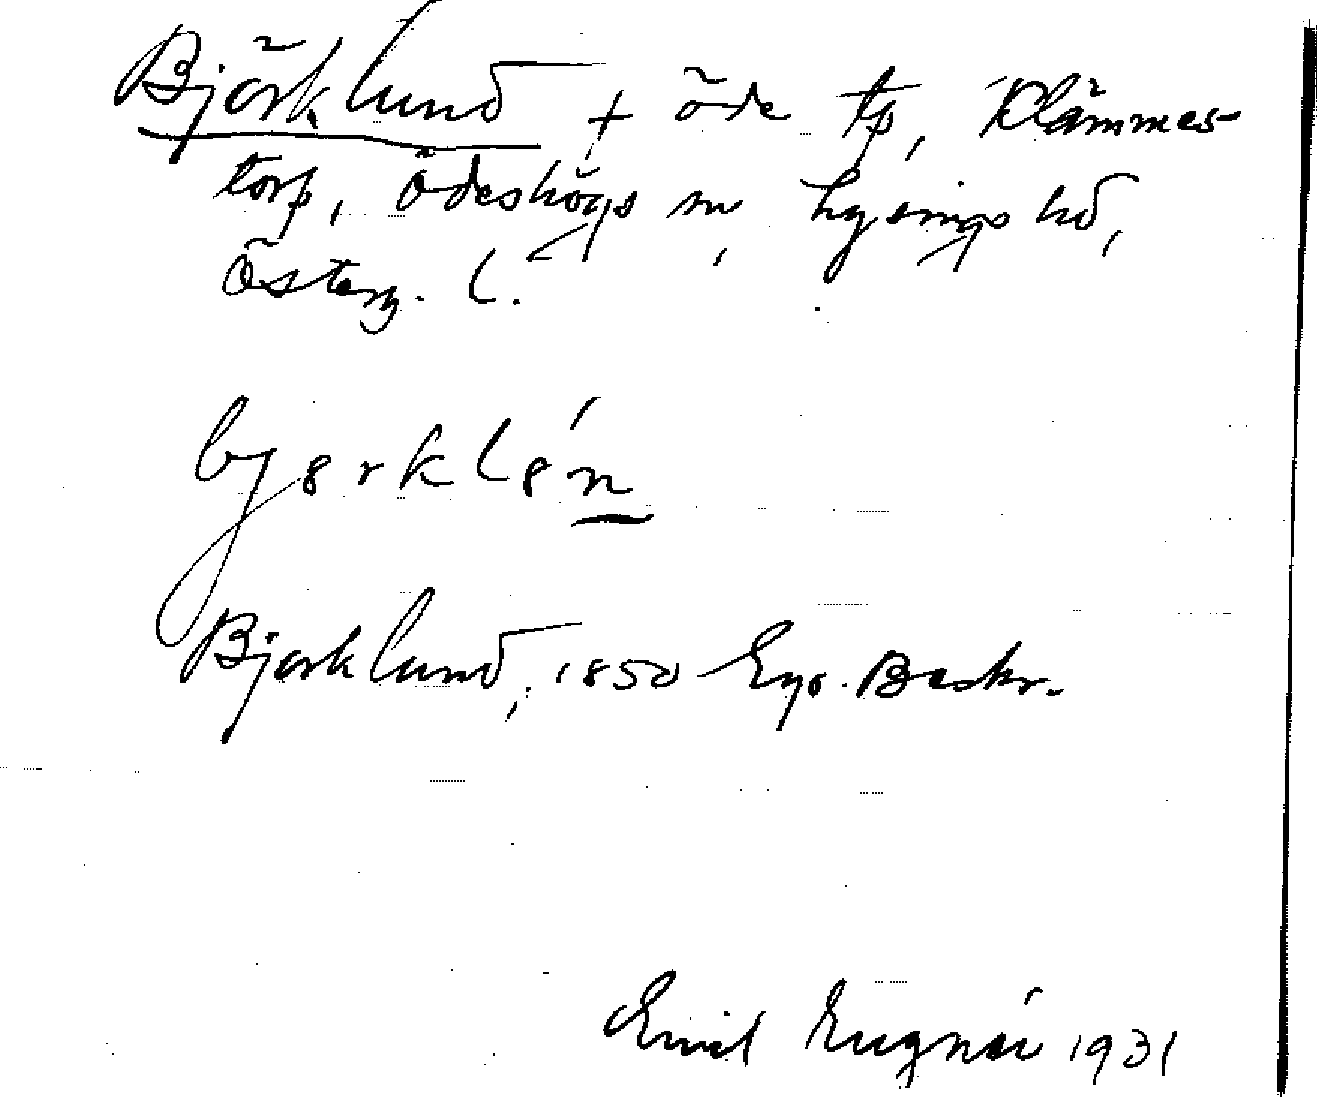 Björklund + öde tp, Klämmes-
torp, Ödeshögs sn, Lysings hd,
Österg. l.
bjørkløń
Björklund, 1850 Ego. Beskr.
Emil 1931